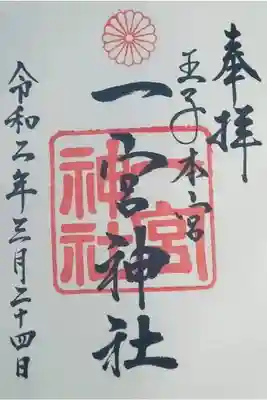 奉拝
王子本宮
一宮神社
一宮神社
令和六年三月二十四日